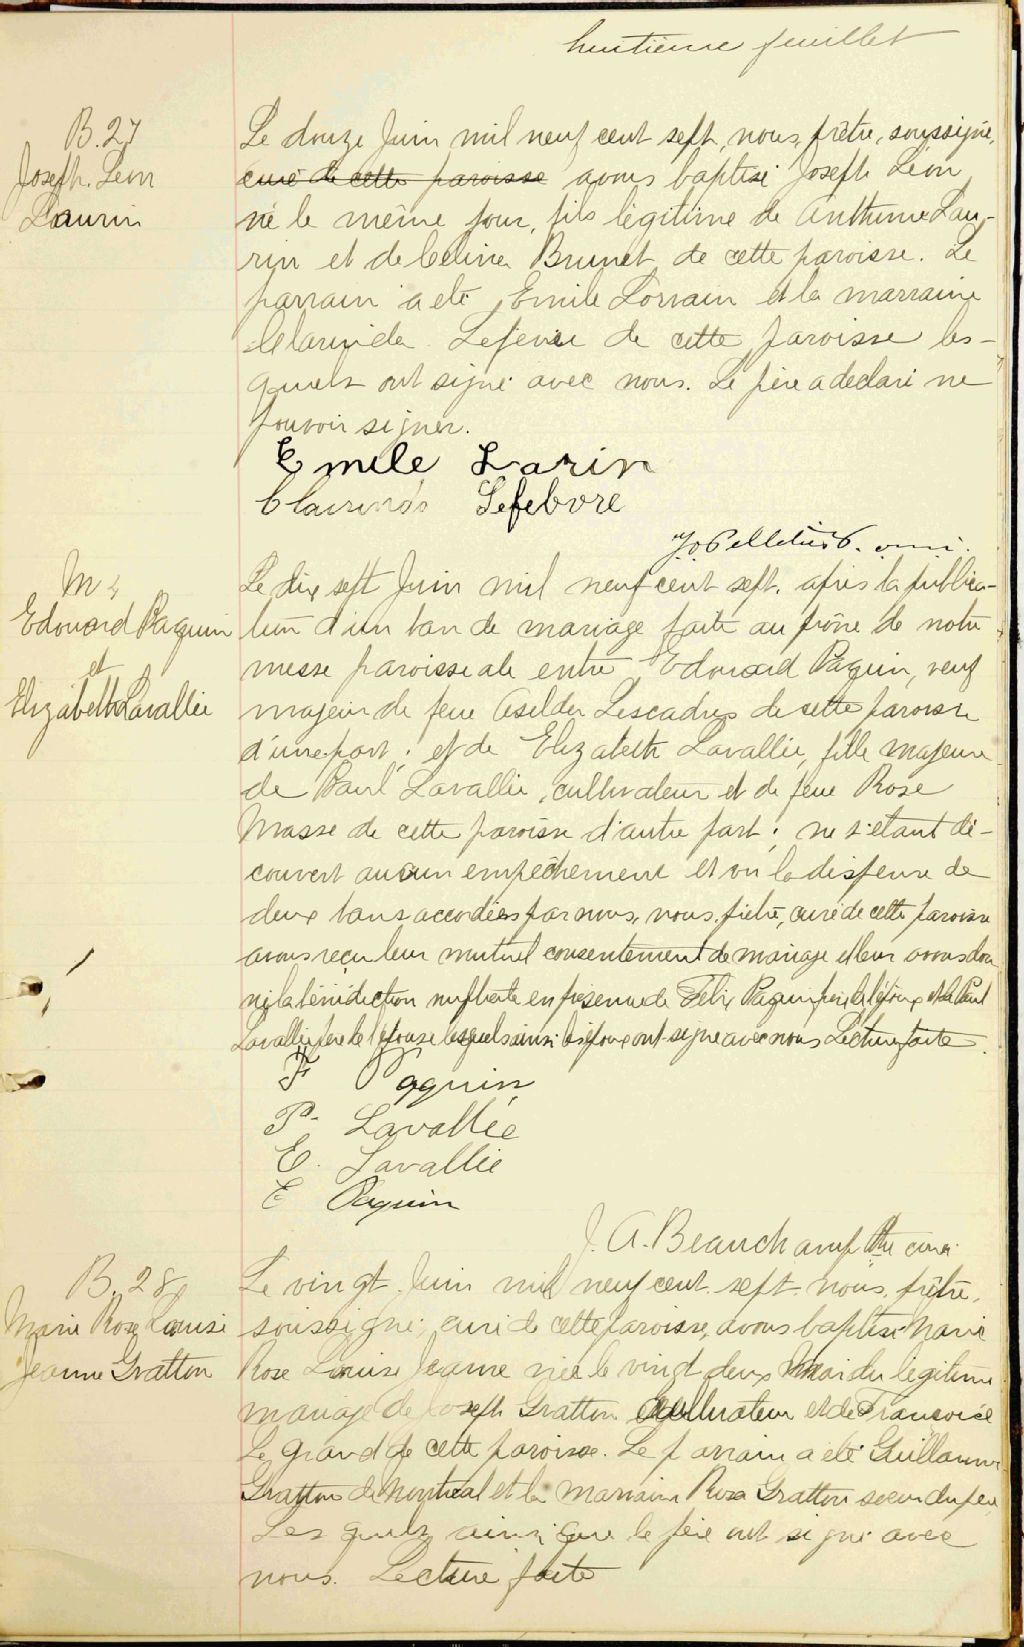 huitième feuillet
B. 27
Joseph. Leon
Laurin
Le douze Juin mil neuf cent sept, nous, prêtre, soussigné,
curé de cette paroisse avons baptisé Joseph Léon
né le même jour, fils légitime de Anthime Lau-
rin et de Celina Brunet de cette paroisse. Le
parrain a été Emile Lorrain et la marraine
Clarinda Lefevre de cette paroisse les-
quels ont signé avec nous. Le père a declaré ne
pouvoir signer.
Emile Larin
Clairinda Lefebvre
M 4
Edouard Paquin
et
Elizabeth Lavallée
Le dix sept Juin mil neuf cent sept. après la publica-
tion d'un ban de mariage faite au prône de notre
messe paroissiale entre Edouard Paquin, veuf
majeur de feue Aselda Lescadres de cette paroisse
d'une part; et de Elizabeth Lavallée, fille majeure
de Paul Lavallée, cultivateur et de feue Rose
Masse de cette paroisse d'autre part; ne s'étant dé-
couvert aucun empêchement et vu la dispense de
deux bans accordées par nous, nous, prêtre, curé de cette paroisse
avons reçu leur mutuel consentement de mariage et leur avons don
né la bénédiction nuptiale en présence de Félix Paquin père de l'époux et de Paul
Lavallée père de l'épouse lesquels ainsi les époux ont signé avec nous Lecture faite.
F Paquin
P. Lavallée
E. Lavallée
E Paquin
J. A. Beauchamp Ptre curé
B. 28
Marie Rose Louise
Jeanne Gratton
Le vingt Juin mil neuf cent sept nous, prêtre,
soussigné, curé de cette paroisse, avons baptisé Marie
Rose Louise Jeanne née le vingt deux Mai du légitime
mariage de Joseph Gratton cultivateur et de Francoise
Le Grand de cette paroisse. Le parrain a été Guillaume
Gratton de Montréal et la marraine Rosa Gratton soeur du père
Les quels ainsi que le père ont signé avec
nous. Lecture faite